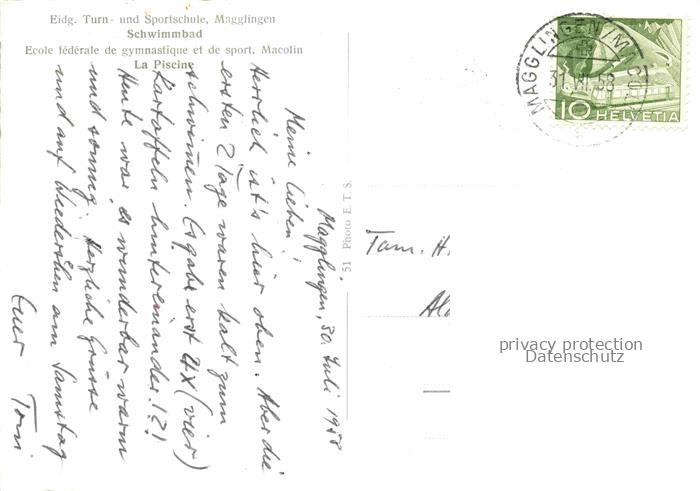 Eidg. Turn- und Sportschule, Magglingen
Schwimmbad
Ecole fédérale de gymnastique et de sport, Macolin
La Piscine
Magglingen, 30. Juli 1958
Meine lieben,
Herrlich ist's hier oben. Aber die
ersten 2 Tage waren kalt zum
schwimmen. Es gabe erst 4x (vier)
Kartoffeln hintereinander!?!
Heute war es wunderbar warm
und sonnig. Herzliche Grüsse
und auf Wiedersehen am Samstag
Euer Toni
51 Photo E. T. S.
MAGGLINGEN/MACOLIN
31.VII.58
10 HELVETIA
Fam. H.
privacy protection
Datenschutz